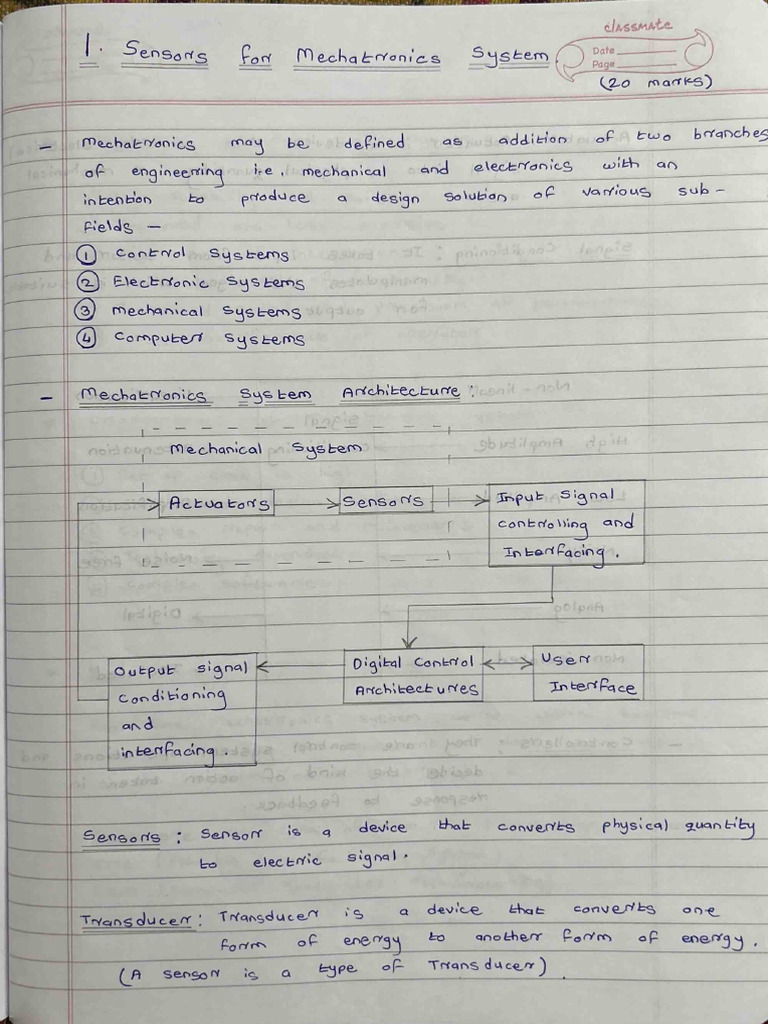 classmate
Date
Page
1. Sensors for Mechatronics System
(20 marks)
- Mechatronics may be defined as addition of two branches
of engineering i.e. mechanical and electronics with an
intention to produce a design solution of various sub-
fields -
1 Control Systems
2 Electronic Systems
3 Mechanical Systems
4 Computer Systems
- Mechatronics System Architecture :
Mechanical System
Actuators
Sensors
Input Signal
controlling and
Interfacing.
Output signal
conditioning
and
interfacing.
Digital Control
Architectures
User
Interface
Sensors : Sensor is a device that converts physical quantity
to electric signal.
Transducer : Transducer is a device that converts one
form of energy to another form of energy.
(A sensor is a type of Transducer).